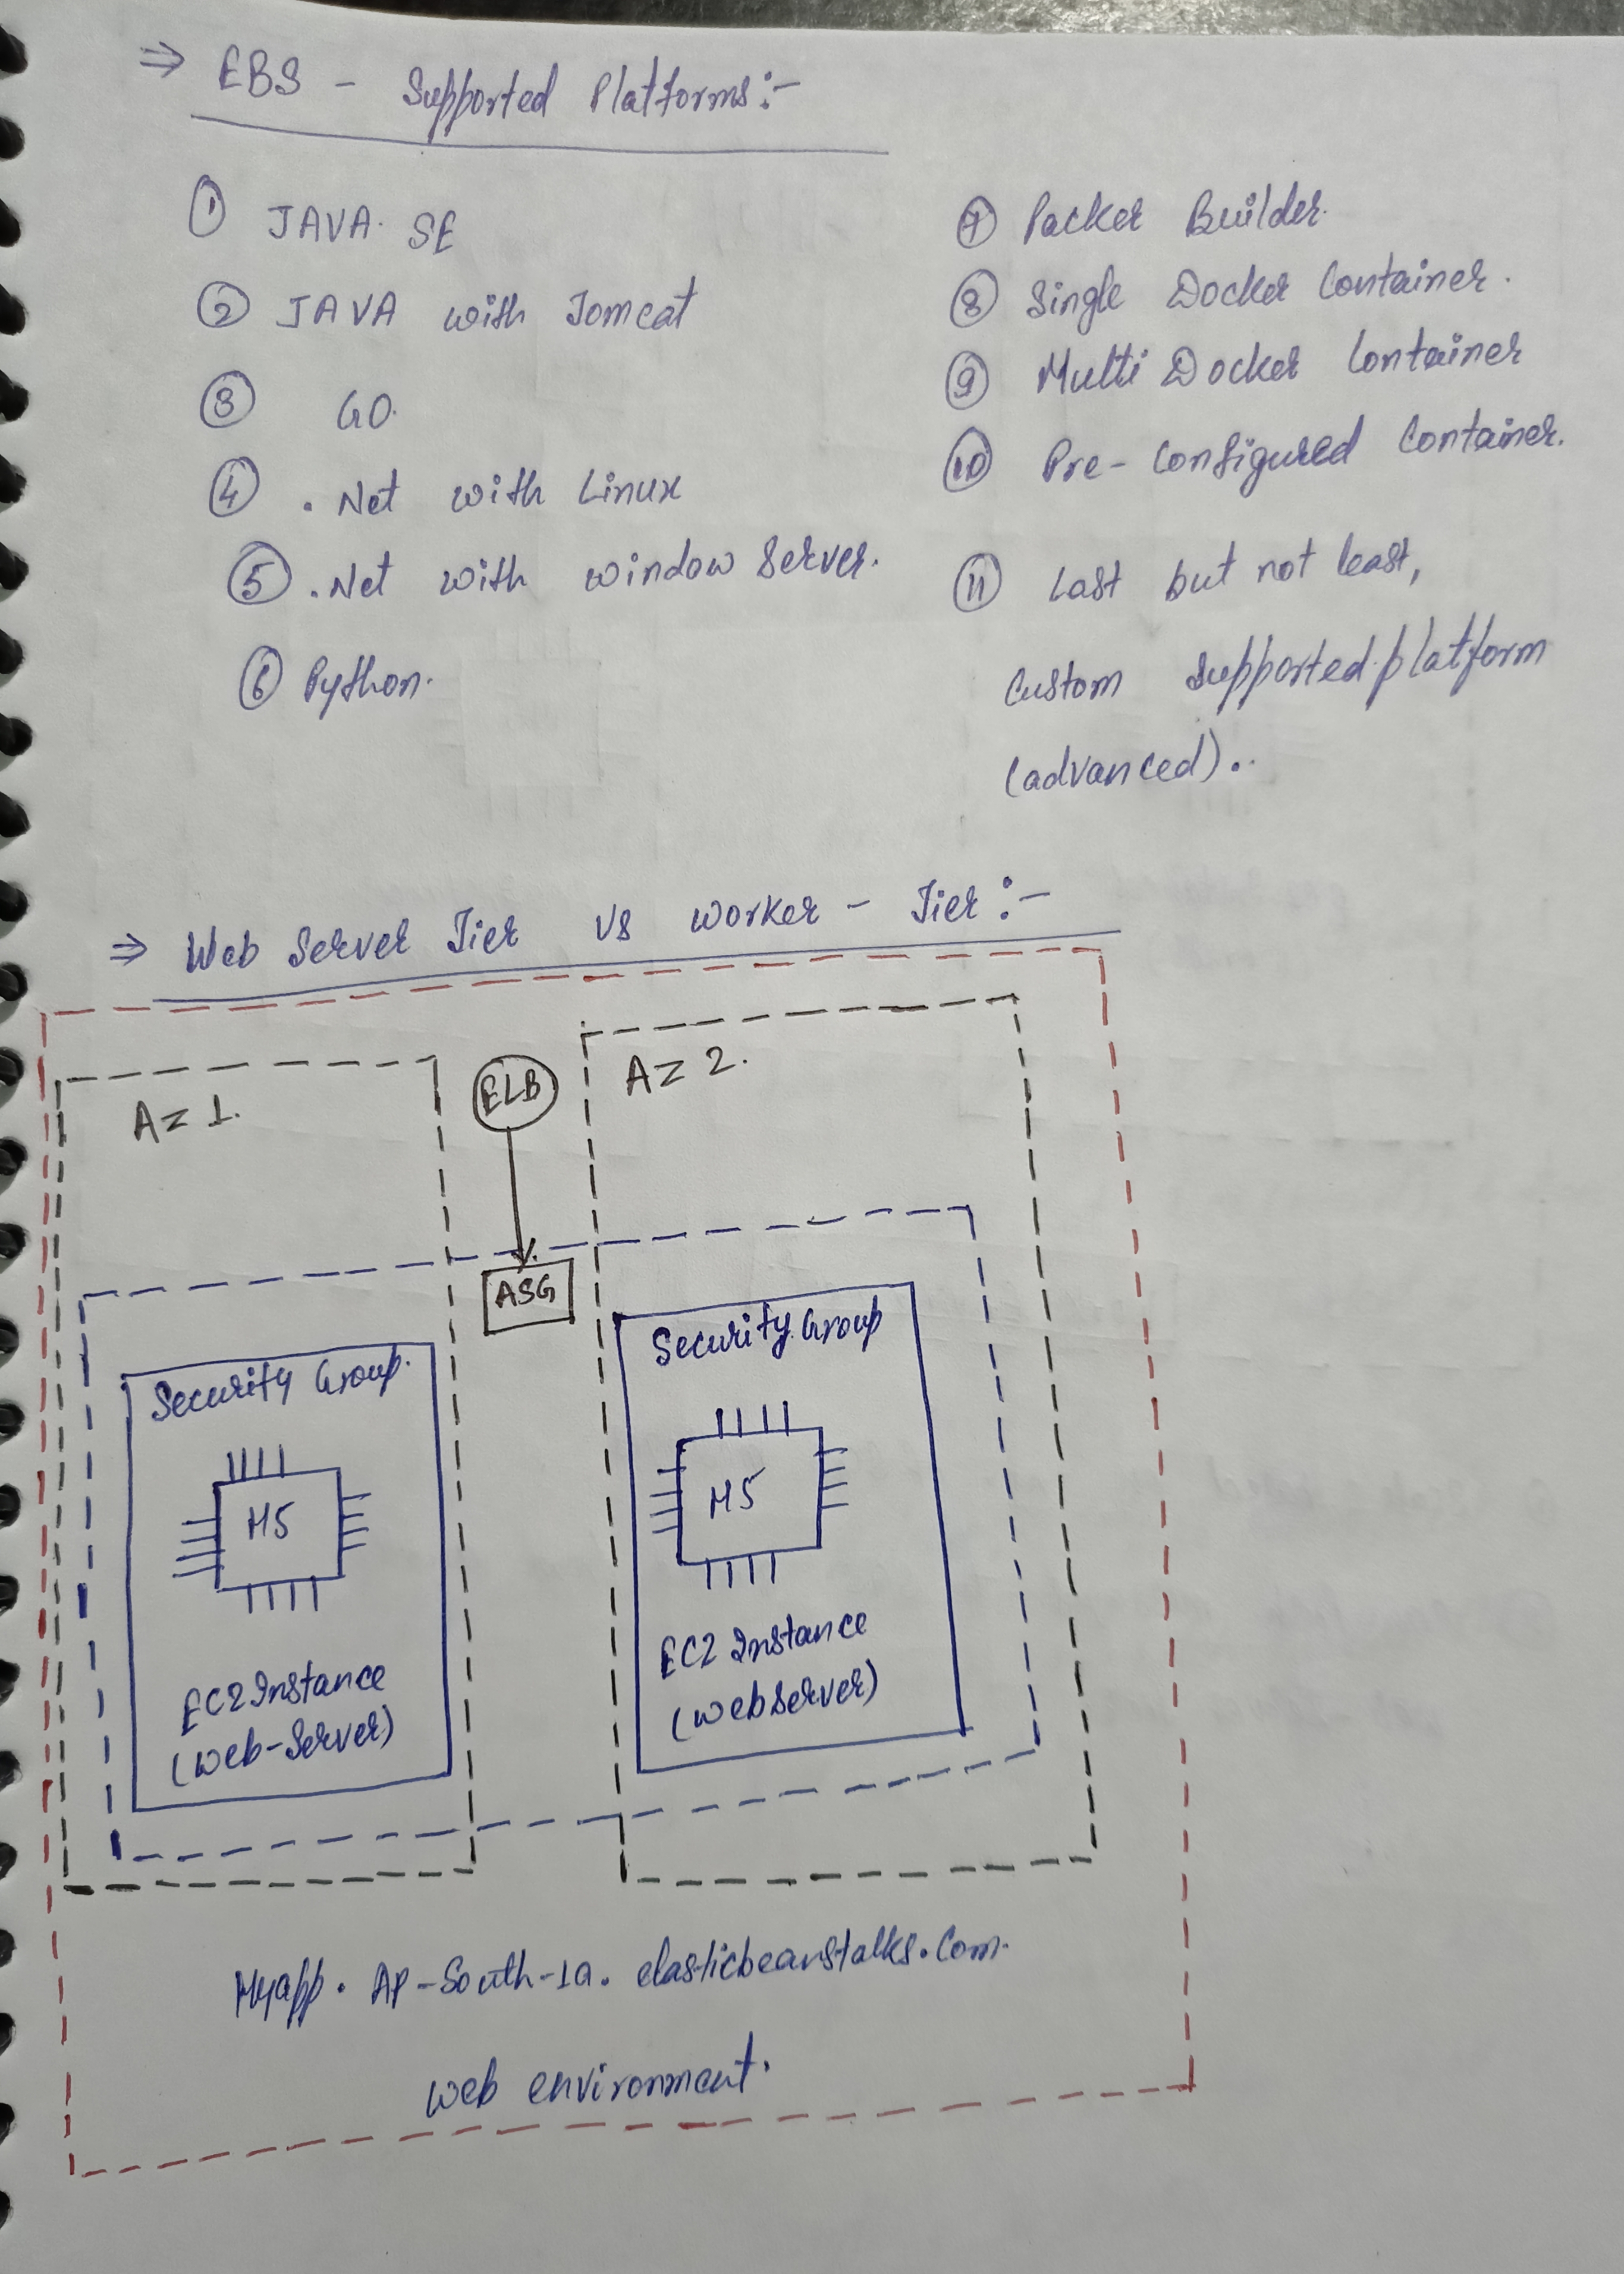 ⇒ EBS - Supported Platforms:-
① JAVA SE
② JAVA with Tomcat
③ GO.
④ .Net with Linux
⑤ .Net with window Server.
⑥ Python.
⑦ Packer Builder.
⑧ Single Docker Container.
⑨ Multi Docker Container
⑩ Pre-Configured Container.
⑪ Last but not least,
Custom Supported platform
(advanced)..
⇒ Web Server Tier VS Worker - Tier:-
AZ 1.
ELB
AZ 2.
ASG
Security Group.
M5
EC2 Instance
(Web-Server)
Security Group
M5
EC2 Instance
(Webserver)
Myapp. AP-South-1a. elasticbeanstalks.com.
Web environment.